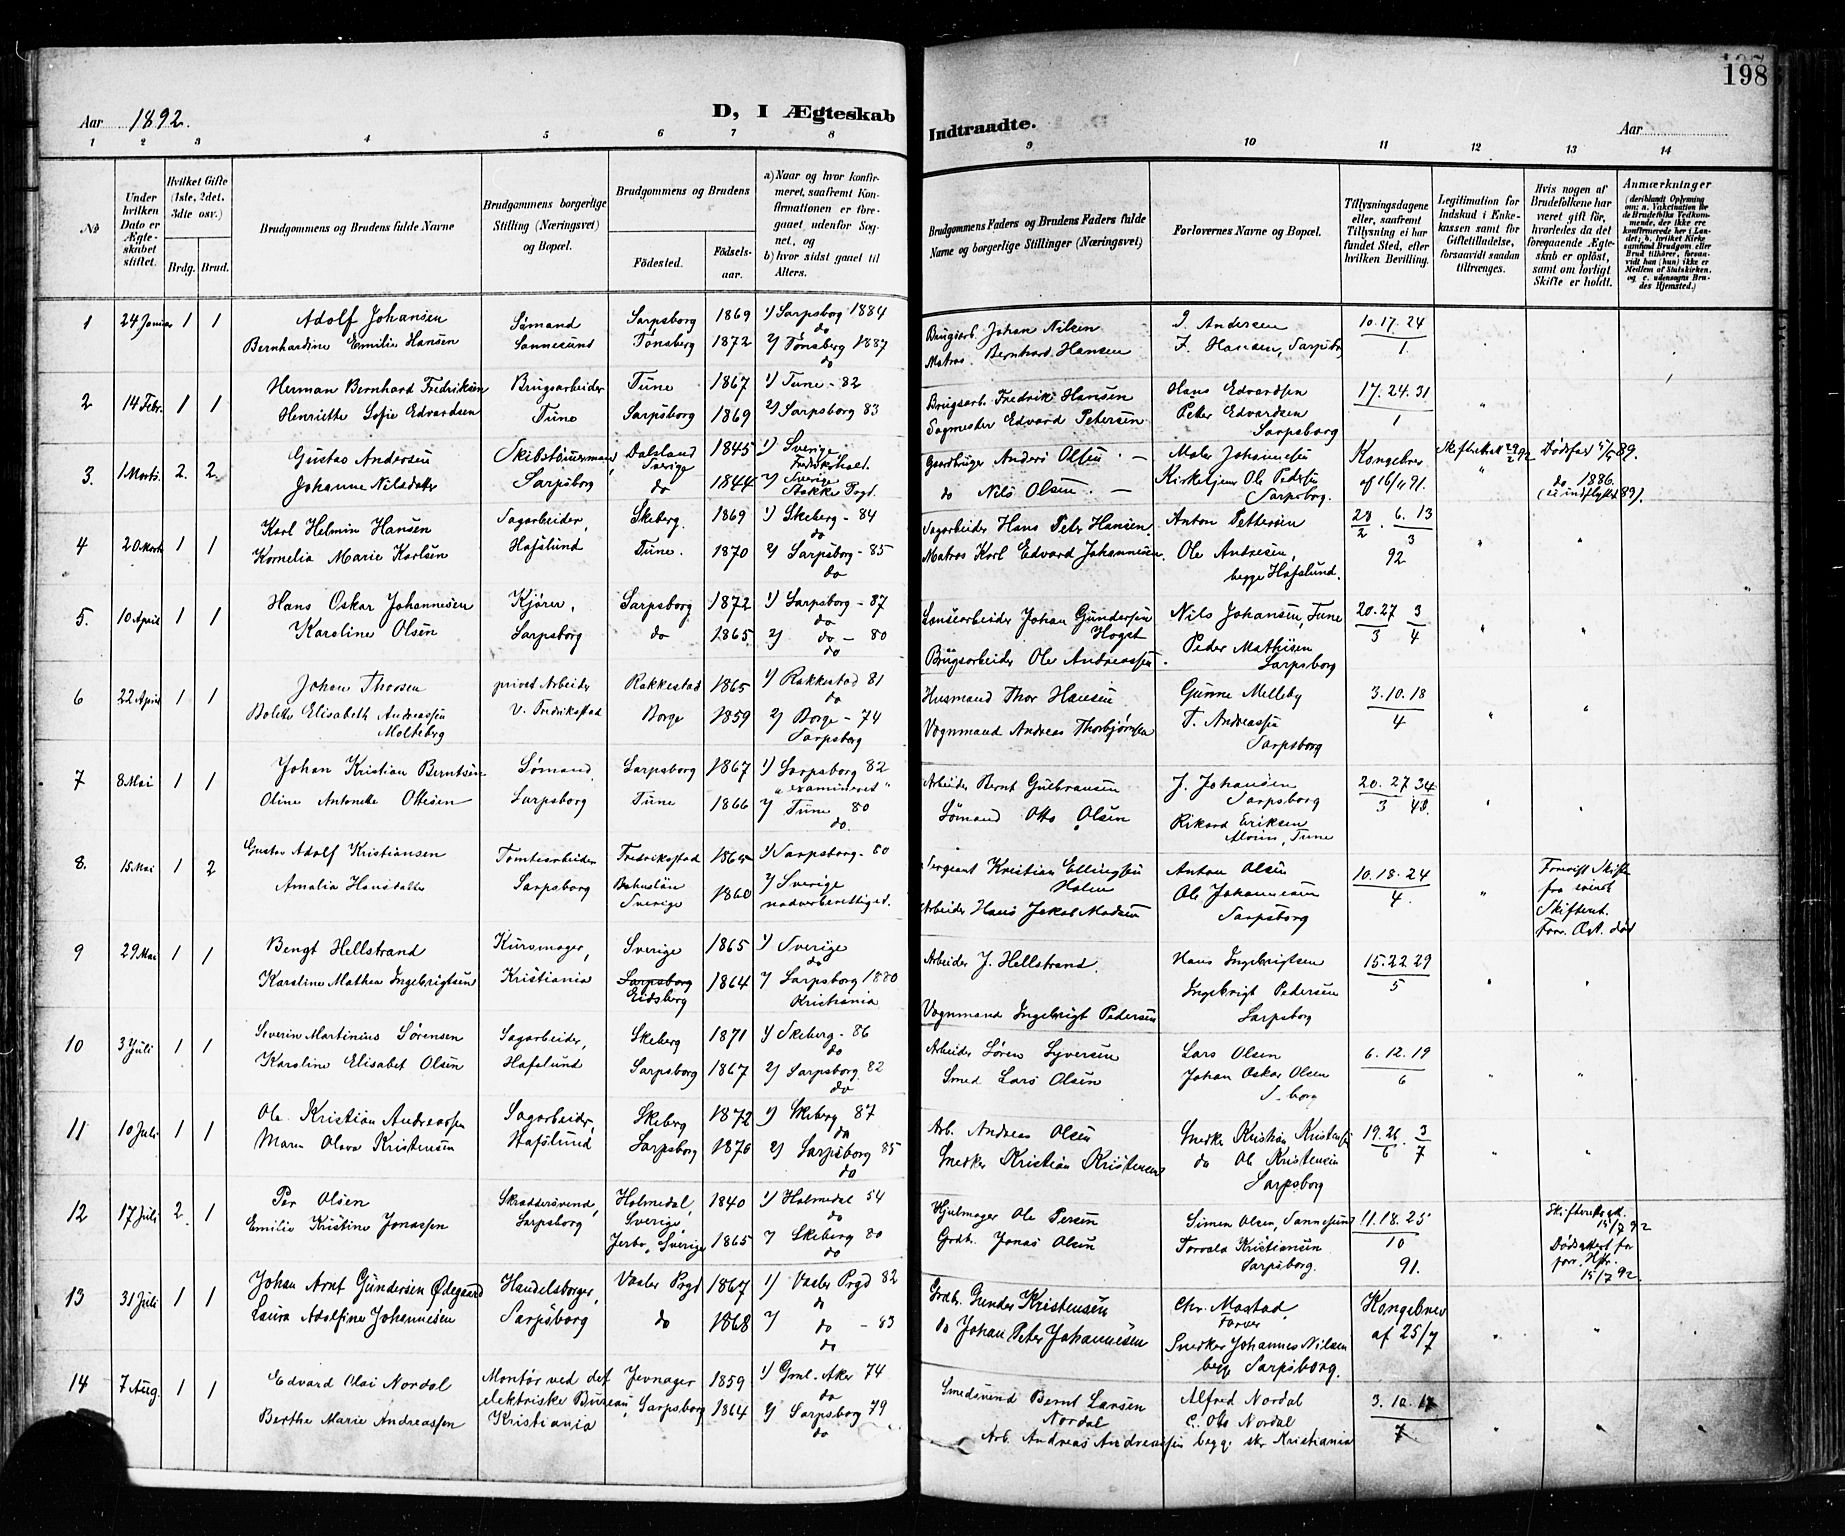 198
Aar 1892.
D, I Ægteskab
Indtraadte.
Aar
1 2 3 4 5 6 7 8 9 10 11 12 13 14
No
Under hvilken Dato er Ægteskabet stiftet.
Hvilket Gifte (1ste, 2det, 3die osv.)
Brdg. Brud.
Brudgommens og Brudens fulde Navne
Brudgommens borgerlige Stilling (Næringsvei) og Bopæl.
Brudgommens og Brudens
Fødested.
Fødsels-aar.
a) Naar og hvor konfirmeret, saafremt Konfirmationen er foregaaet udenfor Sognet, og
b) hvor sidst gaaet til Alters.
Brudgommens Faders og Brudens Faders fulde Navne og borgerlige Stillinger (Næringsvei)
Forlovernes Navne og Bopæl.
Tillysningsdagene eller, saafremt Tillysning ei har fundet Sted, efter hvilken Bevilling.
Legitimation for Indskud i Enkekassen samt for Giftetilladelse, forsaavidt saadan tiltrænges.
Hvis nogen af Brudefolkene har været gift før, hvorledes da det foregaaende Ægteskab er opløst, samt om lovligt Skifte er holdt.
Anmærkninger
(deriblandt Oplysning om: a. Vakcination for de Brudefolks Vedkommende, der ikke ere konfirmerede her i Landet; b. hvilket Kirkesamfund Brudgom eller Brud tilhører, forsaavidt han (hun) ikke er Medlem af Statskirken, og c. udensogns Brudes Hjemsted.)
1 24 Januar 1 1 Adolf Johansen Sømand Sarpsborg 1869 1) Sarpsborg 1884 do Brugsarb. Johan Nilsen J. Andersen 10. 17. 24
Bernhardine Emilie Hansen Sannesund Tønsberg 1872 2) Tønsberg 1887 do Matros Bernhard Hansen F. Hansen, Sarpsb. 1.
2 14 Febr. 1 1 Herman Bernhard Fredriksen Brugsarbeider Tune 1867 1) Tune - 82 Brugsarb. Fredrik Hansen Hans Edvardsen 17. 24. 31
Henriette Sofie Edvardsen Tune Sarpsborg 1869 2) Sarpsborg 83 Sagmester Edvard Petersen Peter Edvardsen Sarpsborg 1
3. 1 Marts. 2. 2. Gustav Andersen Skibstømmermand, Dalsland Sverige 1845 1) Sverige Fredrikshald. Gaardbruger Anders Olsen - Maler Johannesen Kongebrev Skifteattest 29/2 92 Dødsfald 5/5 89.
Johanne Nilsdatter Sarpsborg do 1844 2) Sverige do Nils Olsen. - Kirketjener Ole Pedersen Sarpsborg. af 16/11 91. do 1886. (er indflyttet 89).
4 20 Marts 1 1 Karl Helmin Hansen Sagarbeider, Skeberg. 1869 1) Skeberg - 84 do Sagarbeider Hans Petr. Hansen. Anton Pettersen 28/2 . 6. 13/3
Kornelia Marie Karlsen Hafslund Tune. 1870 2) Sarpsborg - 85 do Matros Karl Edvard Johannesen. Ole Andresen, begge Hafslund. 92
5. 10 April 1 1 Hans Oskar Johannesen Kjører, Sarpsborg 1872 1) Sarpsborg - 87 do Lensearbeider Johan Gundersen Hogst Nils Johansen, Tune 20. 27/3 3/4
Karoline Olsen Sarpsborg do 1865. 2) do - 80 do Brugsarbeider Ole Andreassen. Peder Mathisen Sarpsborg
6 22 April 1 1 Johan Thorsen privat Arbeider Rakkestad 1865 1) Rakkestad 81 do Husmand Thor Hansen Gunne Melleby 3. 10. 18
Bolette Elisabeth Andreassen Molteberg v. Fredrikstad Borge 1859 2) Borge - 74 Sarpsborg Vognmand Andreas Thorbjørnsen T. Andreassen Sarpsborg 4
7 8 Mai 1 1 Johan Kristian Berntsen Sømand, Sarpsborg 1867 1) Sarpsborg 82 "examineret" Arbeider Bernt Gulbransen J. Johansen Sarpsborg 20. 27/3
Oline Antonette Ottesen Sarpsborg Tune 1866 2) Tune 80 do. Sømand Otto Olsen Rikard Eriksen Alvim, Tune
8. 15 Mai 1 2 Gustav Adolf Kristiansen Tomtearbeider Fredrikstad 1865 1) Sarpsborg - 80 Sergeant Kristian Ellingsen Holen Anton Olsen 10. 18. 24
Amalia Hansdatter Sarpsborg Bohuslän Sverige 1860 2) Sverige nadverberettiget. Arbeider Hans Jakob Madsen Ole Johannesen Sarpsborg 4. Skifteret. Forr. Ægt. død
9 29 Mai 1 1 Bengt Hellstrand Kursmager, Sverige 1865 1) Sverige do Arbeider J. Hellstrand. Hans Ingebrigtsen 15. 22. 29
Karoline Mathea Ingebrigtsen Kristiania Sarpsborg Eidsberg 1864 2) Sarpsborg 1880 Kristiania Vognmand Ingebrigt Pedersen Ingebrigt Pedersen Sarpsborg 5
10 3 Juli 1 1 Severin Martinius Sørensen Sagarbeider, Skeberg 1871 1) Skeberg - 86 do Arbeider Søren Syversen Lars Olsen 6. 12. 19
Karoline Elisabet Olsen Hafslund Sarpsborg 1867 2) Sarpsborg 82 do Smed Lars Olsen Johan Oskar Olsen S-borg 6
11 10 Juli 1 1 Ole Kristian Andreassen Sagarbeider, Skeberg 1872 1) Skeberg 87 do Arb. Andreas Olsen Snedker Kristian Kristensen 19. 26/6 . 3/7
Maren Olava Kristensen Hafslund Sarpsborg 1870 2) Sarpsborg 85 do Snedker Kristian Kristensen do Ole Kristensen Sarpsborg
12 17 Juli 2. 1 Per Olsen Skræddersvend, Holmedal, Sverige, 1840 1) Holmedal 54 do Hjulmager Ole Persen Simen Olsen, Sannesund 11. 18. 25 Skifteretsatt. 15/7 92
Emilie Kristine Jonassen Sarpsborg Jerbo, Sverige 1865 2) Skeberg 80 do Grdb. Jonas Olsen Torvald Kristiansen Sarpsborg. 10 91. Dødsattest for forr. Hstr. 15/7 92.
13 31 Juli 1 1 Johan Arnt Gundersen Ødegaard Handelsborger, Vaaler Prgd 1867 1) Vaaler Prgd 82 do Grdb. Gunder Kristensen Chr. Mastad, Farver Kongebrev
Laura Adolfine Johannesen Sarpsborg do 1868 2) do - 83 do do Johan Peter Johannesen Snedker Johannes Nilsen begge Sarpsborg. af 25/7
14 7 Aug 1 1 Edvard Olai Nordal Montør ved det elektriske Bureau, Jevnager 1859 1) Gml. Aker 74 do Smedsvend Bernt Larsen Nordal Alfred Nordal 3. 10. 17
Berthe Marie Andreassen Kristiania Sarpsborg 1864 2) Sarpsborg 79 do Arb. Andreas Andreassen C. Otto Nordal begge Kristiania 7